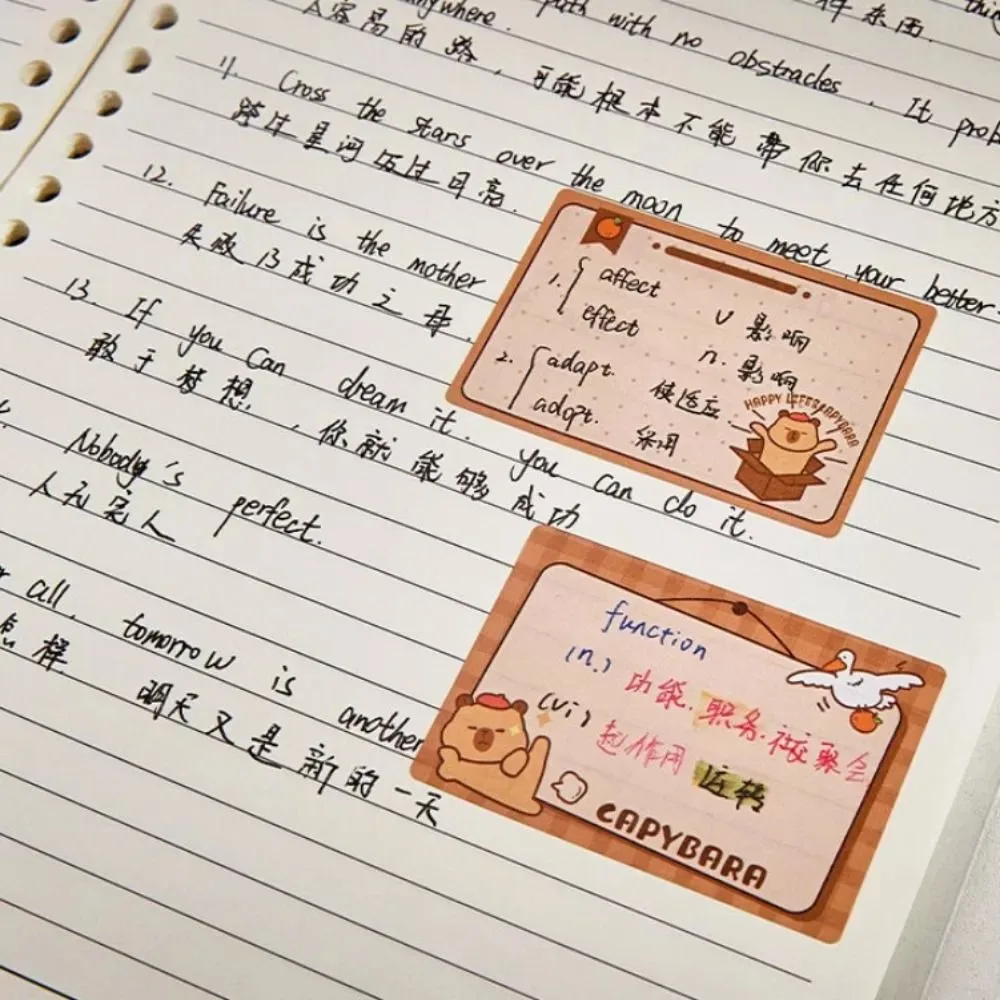 anywhere. path with no obstracles. It prob
人容易的路，可能根本不能带你去任何地方
件东西.
11. Cross the stars over the moon to meet your better.
跨过星河迈过月亮.
12. Failure is the mother
失败乃成功之母.
13. If you can dream it. you can do it.
敢于梦想，你就能够成功
Nobody's perfect.
人无完人
all, tomorrow is another
怎样. 明天又是新的一天
1. affect v 影响
effect n. 影响
2. adapt. 使适应
adopt. 采用
HAPPY LIFE CAPYBARA
function
(n.) 功能. 职务. 社交聚会
(vi) 起作用 运转
CAPYBARA